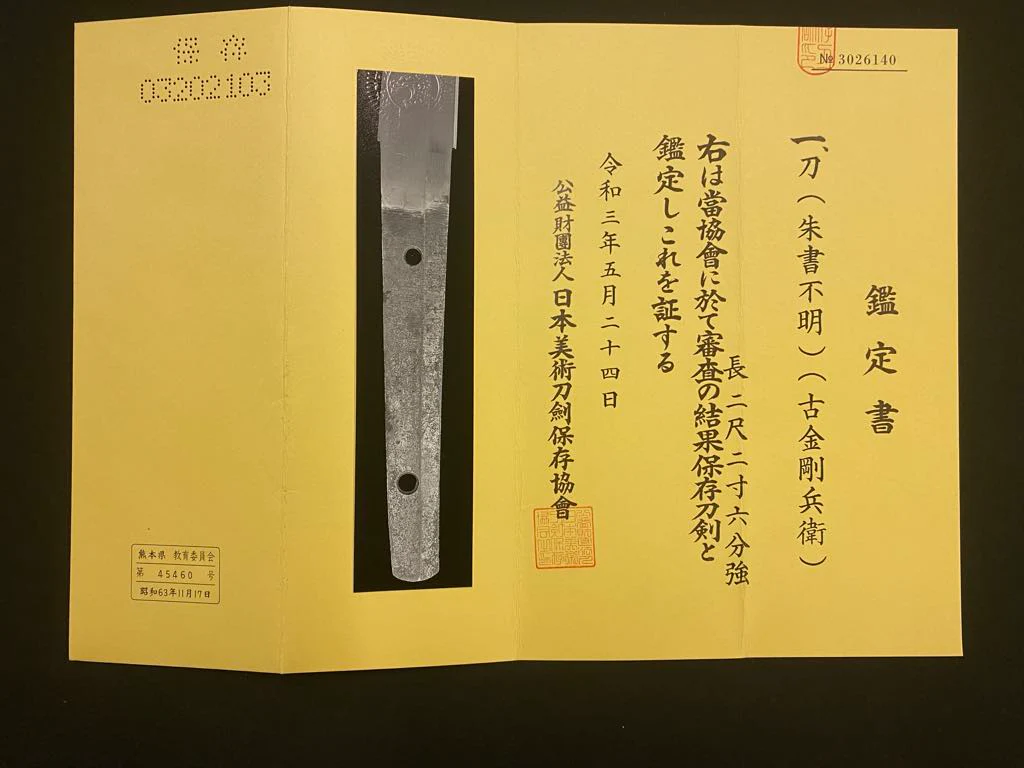 № 3026140
鑑定書
一、刀(朱書不明)(古金剛兵衛)
長二尺二寸六分強
右は當協會に於て審査の結果保存刀剣と
鑑定しこれを証する
令和三年五月二十四日
公益財團法人日本美術刀劍保存協會
保存
03202103
熊本県 教育委員会
第 45460 号
昭和63年11月17日